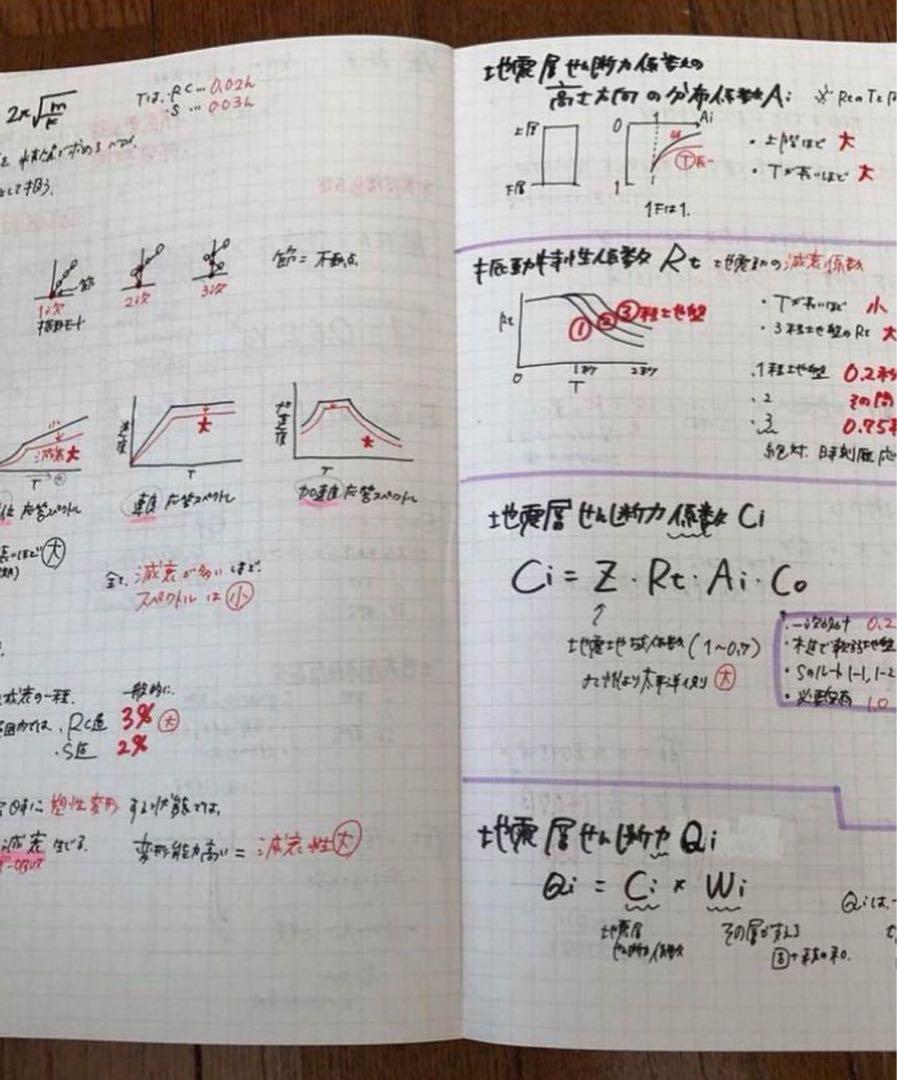 2π√m/k
Tは、・RC… 0.02h
・S … 0.03h
として扱う。
節
1次
2次
3次
振動モード
節 = 不動点。
小
減衰大
T
応答スペクトル
大
速度
大
T
速度 応答スペクトル
加速度
大
T
加速度 応答スペクトル
全て、減衰が多いほど、
スペクトルは 小
減衰の一種。
一般的に、
・RC造 3% 大
・S造 2%
塑性変形 する状態では、
減衰 生じる。
変形能力高い = 減衰性 大
地震層せん断力係数の
高さ方向の分布係数 Ai
※ RtのTと
上層
下層
0
1
1
Ai
T 長い
1Fは1.
・上階ほど 大
・Tが長いほど 大
振動特性係数 Rt 地震動の減衰係数
Rt
0
① ② ③種地盤
1秒
2秒
T
・Tが長いほど 小
・3種地盤のRt 大
・1種地盤 0.2秒
・2 その間
・3 0.75秒
地震層せん断力係数 Ci
Ci = Z・Rt・Ai・Co
↑
地震地域係数 (1~0.7)
太平洋側 大
・一次設計 0.2
・木造で軟弱地盤
・Sのルート1-1, 1-2
・必要保有 1.0
地震層せん断力 Qi
Qi = Ci × Wi
地震層
せん断力係数
その層が支える
固+積の和。
Qiは、